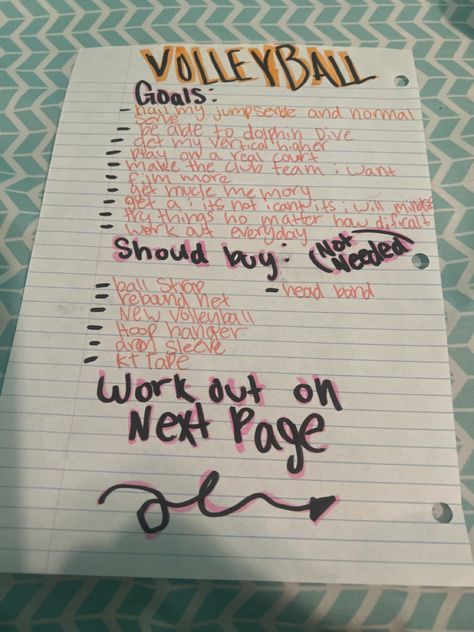 VOLLEYBALL
Goals:
- nail my jumpserve and normal
serve
- be able to dolphin dive
- get my vertical higher
- play on a real court
- make the club team i want
- film more
- get mucle memory
- get a i its not i can its i will mindset
- try things no matter how dificalt
- work out everyday
Should buy: (Not Needed)
- ball strap - head band
- rebound net
- New volleyball
- Hoop hanger
- arm sleeve
- KT Tape
Work out on
Next Page